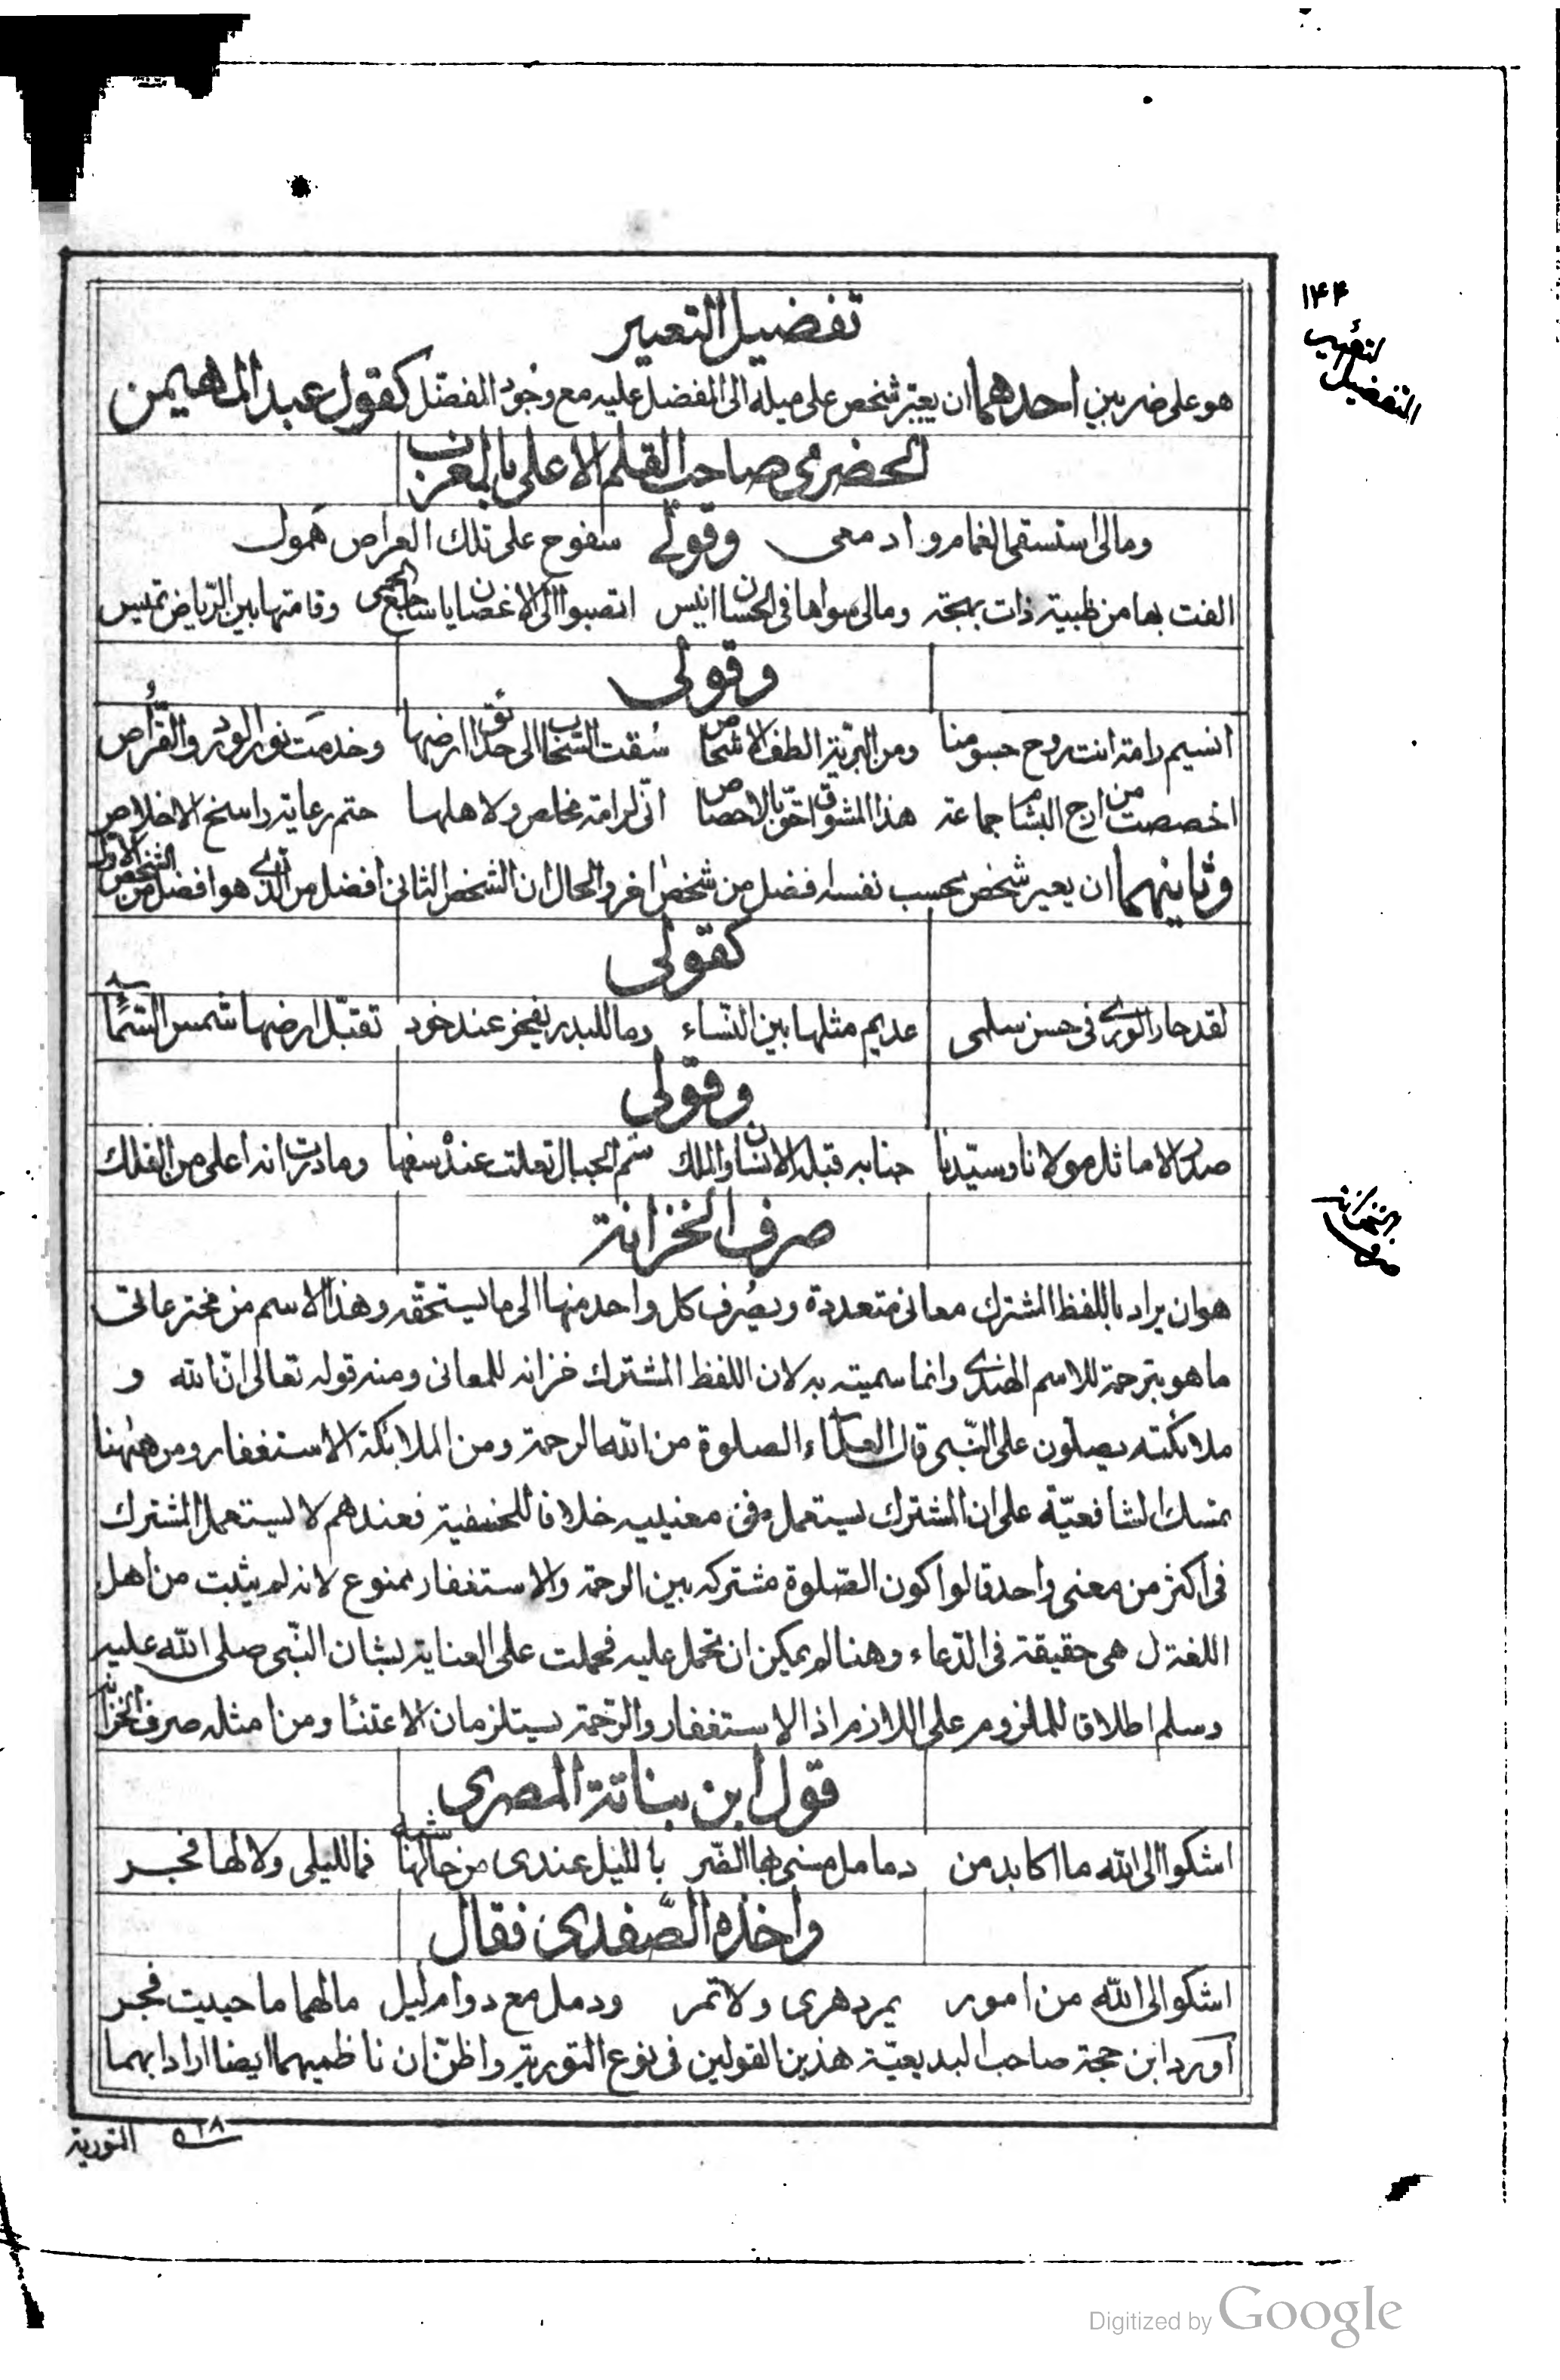 ١٤٤
التفضيل
تفضيل التعيير
هو على ضربين احدهما ان يعيّر شخص على ميله الى المفضل عليه مع وجود المفضّل كقول عبد المهيمن
الحضرمي صاحب القلم الاعلى بالمغرب
ومالى استسقى الغمام وادمعى سفوح على تلك العراص همول وقولى
الفت بها من ظبية ذات بهجة ومالى سواها فى الحسان انيس اتصبوا الى الاغصان يا ساجع الحمى وقامتها بين الرياض تميس
وقولى
انسيم رامة انت روح جسومنا ومن البريّة الطف الاشخاص سُقت السّحاب الى حدائق ارضها وخدمت نور الورد والقُرّاص
اخصصت من ارج البشام جماعة هذا المشوق احق بالاخصاص انّى لرامة مخلص ولاهلها حتم رعاية راسخ الاخلاص
وثانيهما ان يعير شخص يحسب نفسه افضل من شخص اخر والحال ان الشخص الثانى افضل من الذى هو افضل من الشخص الاول
كقولى
لقد حار الورى فى حسن سلمى عديم مثلها بين النّساء وما للبدر يفخر عند خود تقبّل ارضها شمس السّماء
وقولى
صدر الاماثل مولانا وسيّدنا جنابه قبلة الانسان والملك شم الجبال تعلت عند سفها وما درت انه اعلى من الفلك
صرف الخزانة
صرف الخزانة
هو ان يراد باللفظ المشترك معانى متعددة ويصُرف كل واحد منها الى ما يستحقه وهذا الاسم من مخترعاتى
ما هو بترجمة للاسم الهندى وانما سميته به لان اللفظ المشترك خزانه للمعانى ومنه قوله تعالى انّ الله و
ملائكته يصلون على النّبى قال العلماء الصلوة من الله الرحمة ومن الملائكة الاستغفار ومن ههنا
تمسك الشافعيّة على ان المشترك يستعمل فى معنييه خلافا للحنفية فعندهم لا يستعمل المشترك
فى اكثر من معنى واحد قالوا كون الصّلوة مشتركه بين الرحمة والاستغفار ممنوع لانه لم يثبت من اهل
اللغة ل هى حقيقة فى الدّعاء وهنا لم يمكن ان تحمل عليه فحملت على العناية بشان النّبى صلى الله عليه
وسلم اطلاق للملزوم على اللازم اذ الاستغفار والرّحمة يستلزمان الاعتنا ومن امثلة صرف الخزانة
قول ابن نباتة المصرى
اشكوا الى الله ما اكابد من دمامل مسنى بها الضّر يا لليل عندى من حالها شبه فما لليلى ولا لها فجر
واخذه الصّفدى فقال
اشكوا الى الله من امور يمر دهرى ولا تمر ودمل مع دوام ليل ما لهما ما حييت فجر
اورد ابن حجة صاحب البديعيّة هذين القولين فى نوع التورية واظنّ ان ناظميهما ايضا ارادا بهما
التورية
Digitized by Google